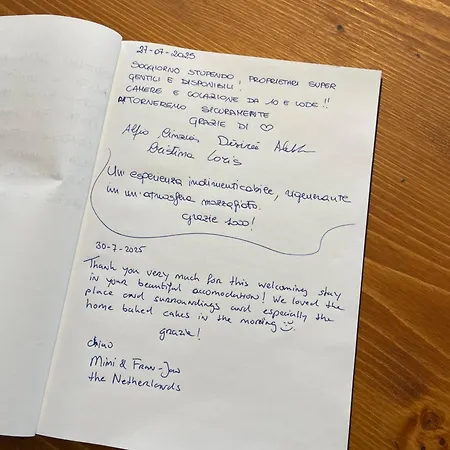 27-07-2025
SOGGIORNO STUPENDO! PROPRIETARI SUPER
GENTILI E DISPONIBILI!
CAMERE E COLAZIONE DA 10 E LODE!!
RITORNEREMO SICURAMENTE
GRAZIE DI ♡
Alfio Cinzia Desireé
Cristina Loris
Un esperienza indimenticabile, rigenerante
in un'atmosfera mozzafiato.
Grazie 1000!
30-7-2025
Thank you very much for this welcoming stay
in your beautiful accomodation! We loved the
place and surroundings and especially the
home baked cakes in the morning ☺.
grazie!
chiao
Mimi & Fran-Jan
the Netherlands